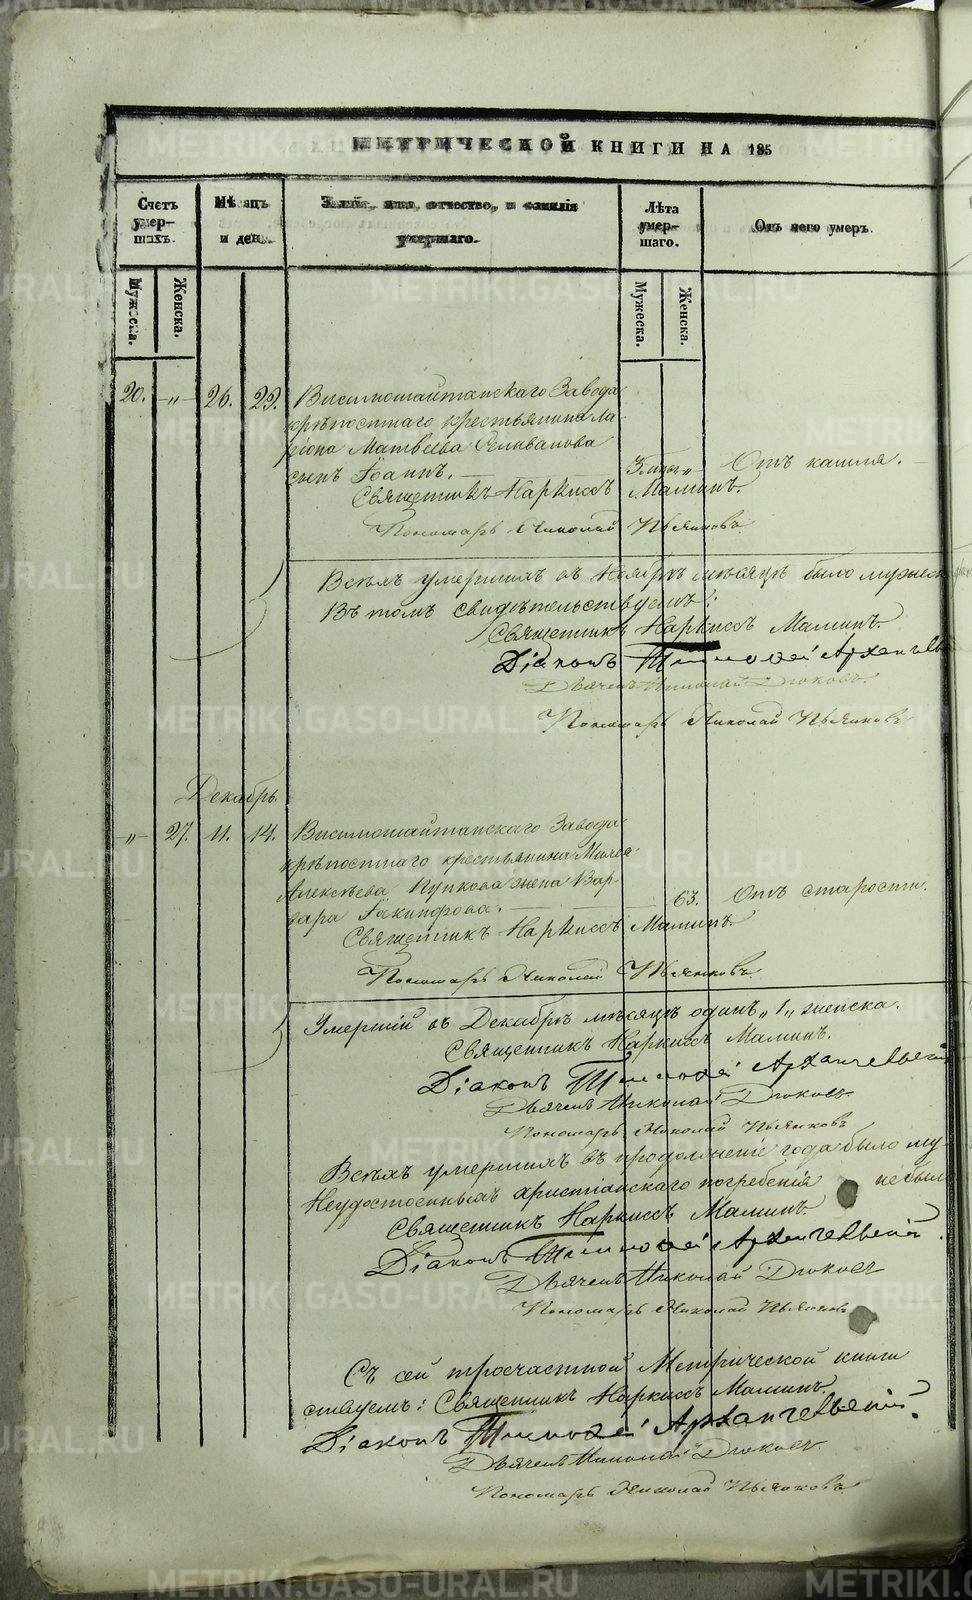 МЕТРИЧЕСКОЙ КНИГИ НА 185
Счетъ умер-шихъ.
Мѣсяцъ и день.
Званіе, имя, отчество, и фамилія умершаго.
Лѣта умер-шаго.
Отъ чего умеръ.
Мужеска.
Женска.
Мужеска.
Женска.
20. -„- 26. 29. Висимошайтанскаго Завода
крѣпостнаго крестьянина Ла-
ріона Матвѣева Селиванова
сынъ Іоаннъ.
„- Отъ кашля.
Священникъ Наркиссъ Маминъ.
Пономарь Николай Пьянковъ
Всѣхъ умершихъ въ Ноябрѣ мѣсяцѣ было мужеск
Въ томъ свидѣтельствуемъ:
Священникъ Наркиссъ Маминъ.
Діаконъ Тимофей Архангель
Дьячекъ Николай Дюковъ.
Пономарь Николай Пьянковъ
Декабрь.
-„- 27. 11. 14. Висимошайтанскаго Завода
крѣпостнаго крестьянина
Алексѣева Пупкова жена Вар-
вара Іакинфова.
63. Отъ старости.
Священникъ Наркиссъ Маминъ.
Пономарь Николай Пьянковъ
Умершій въ Декабрѣ мѣсяцѣ одинъ „1„ женска.
Священникъ Наркиссъ Маминъ.
Діаконъ Тимофей Архангельскій
Дьячекъ Николай Дюковъ
Пономарь Николай Пьянковъ
Всѣхъ умершихъ въ продолженіе года было му
Неудостоенныхъ христіанскаго погребенія не было
Священникъ Наркиссъ Маминъ.
Діаконъ Тимофей Архангельскій.
Дьячекъ Николай Дюковъ
Пономарь Николай Пьянковъ
Съ сей троечастной Метрической книги
ствуемъ: Священникъ Наркиссъ Маминъ.
Діаконъ Тимофей Архангельскій.
Дьячекъ Николай Дюковъ.
Пономарь Николай Пьянковъ
METRIKI.GASO-URAL.RU